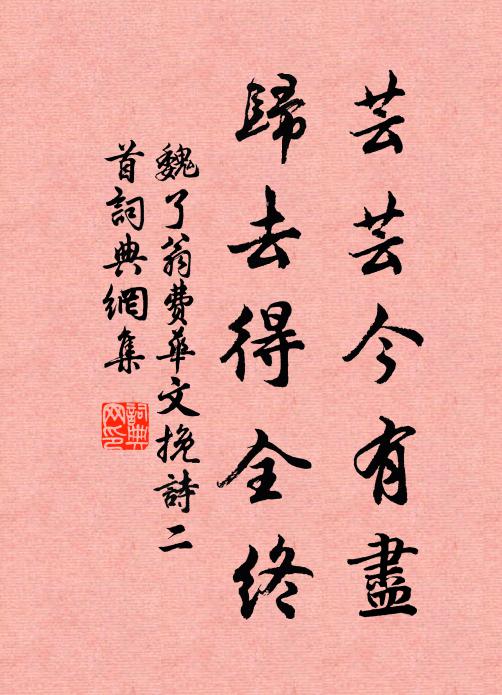 芸芸今有盡
歸去得全終
魏了翁費華文挽詩二
首詞典網集
詞典网印